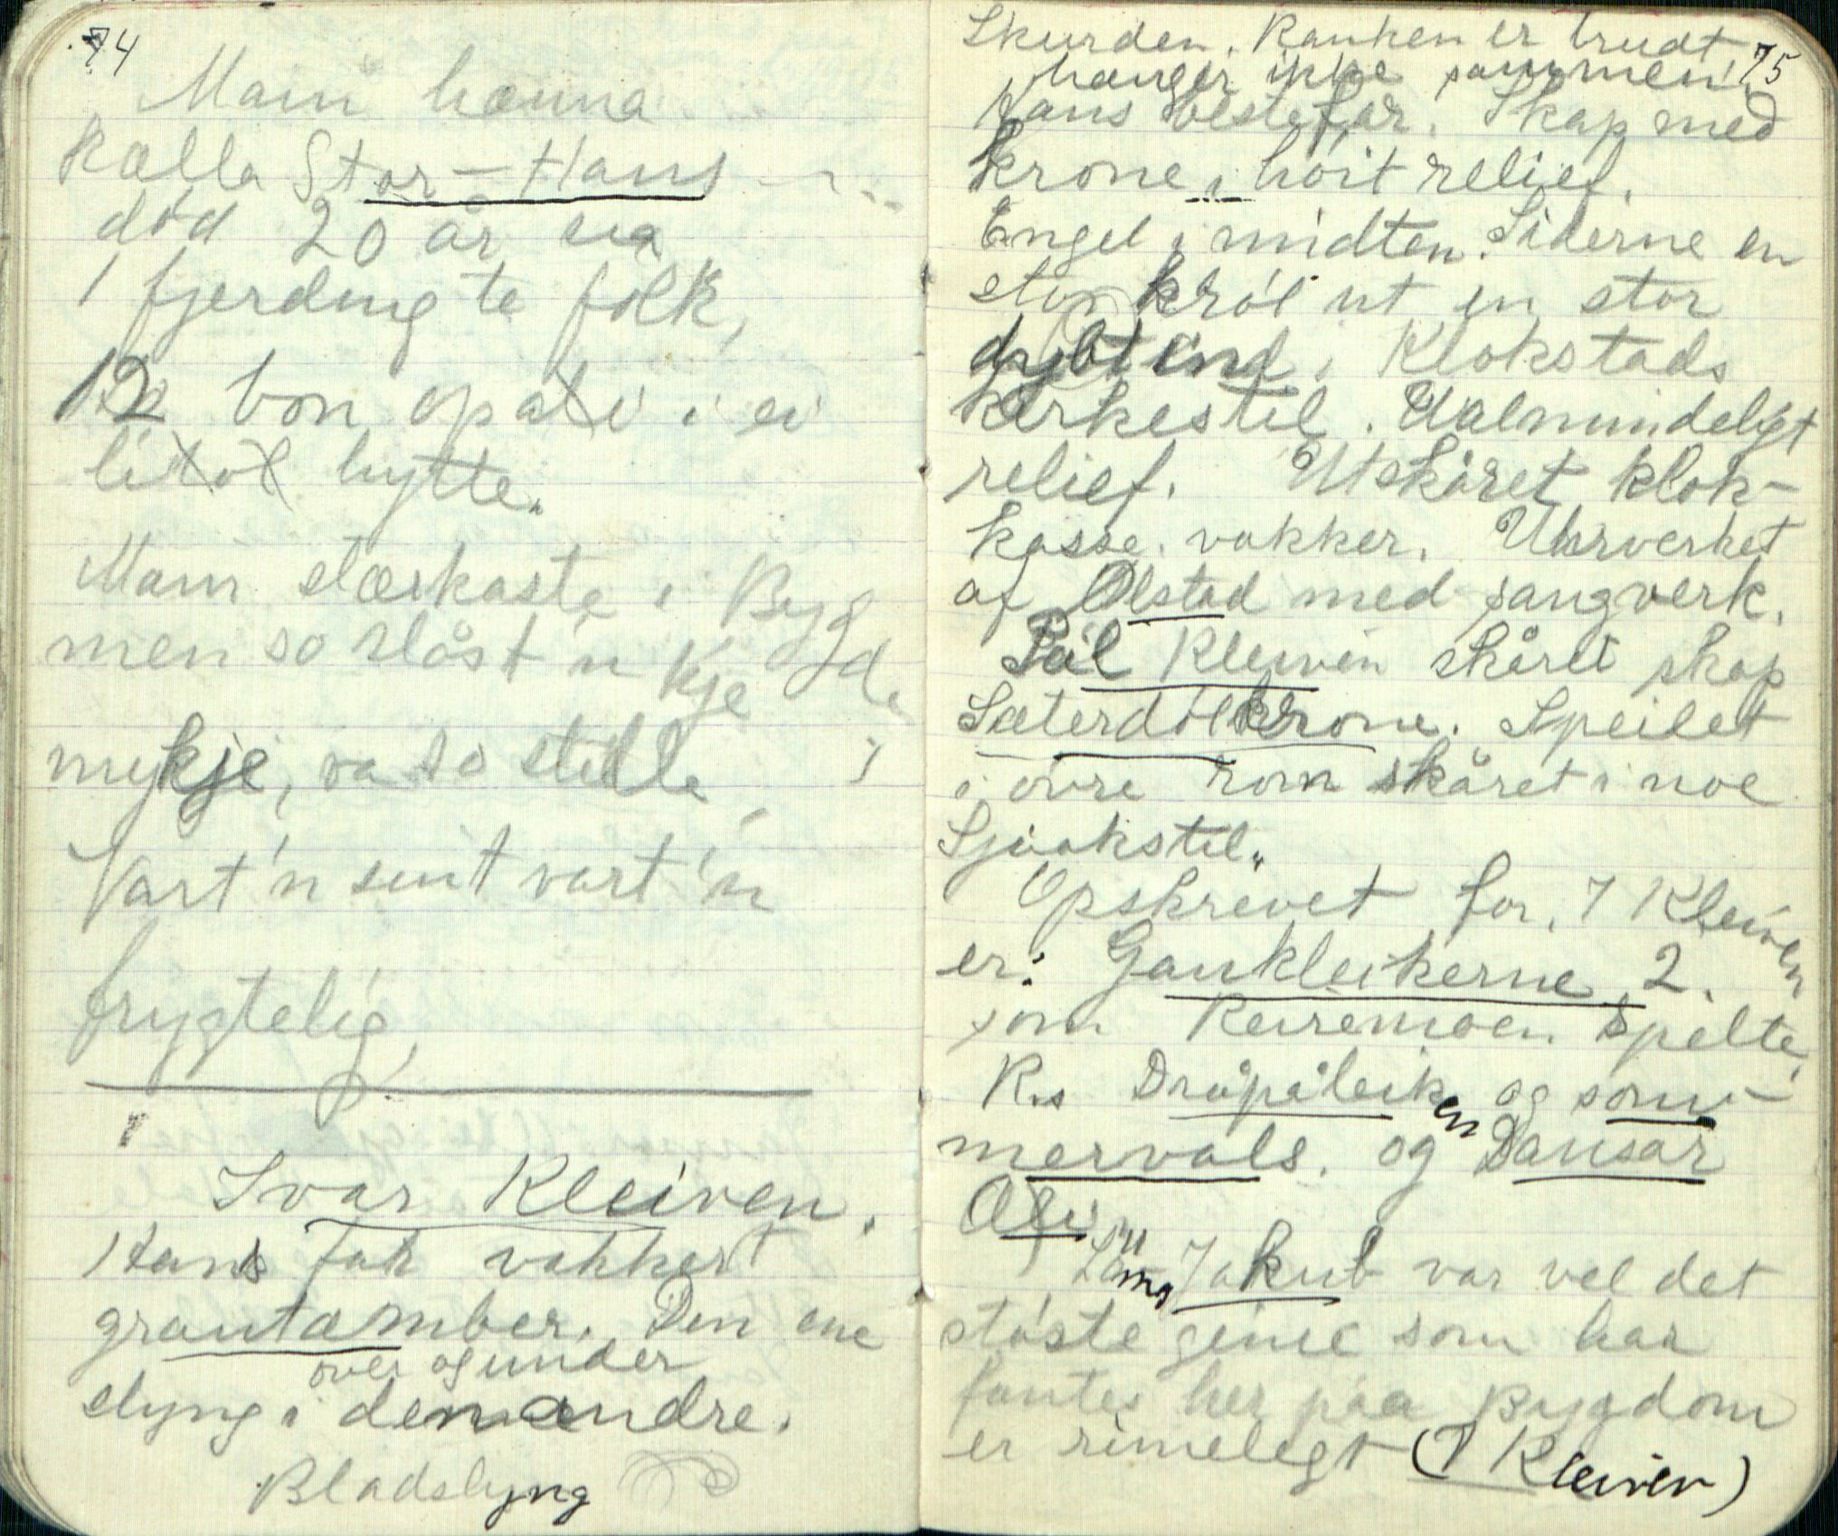 74
Main hanna
kalla Stor-Hans
död 20 år sia
1 fjerding te folk,
12 bon opali i ei
liten hytte.
Main stærkaste i Bygd
men so slåst'n kje
mykje, va so stille
Vart'n sint vart'n
frygtelig,
Ivar Kleiven.
Hans fat vakkert
grautamber. Den ene
over og under
slyng i den andre.
Bladslyng
75
Skurden. Ranken er brudt
hænger ikke sammen.
Hans bestefar. Skap med
krone i høit relief.
Engel i midten. Siderne en
stor krøl ut en stor
dypt ind i Klokstads
kirkestil. Ualmindeligt
relief. Utskåret klok-
kasse. vakker. Uhrverket
af Ølstad med sangverk.
Pål Kleiven skåret skap
Sæterdölkrone. Speilet
i övre rom skåret i noe
Sjoakstil.
Opskrevet for I Kleiven
er: Gaukleikerne 2.
som Reiremoen spelte.
R.s Dråpåleiken og som-
mervals. og Dansar
Ola
Jakub var vel det
støste geni som har
fantes her paa Bygdom
er rimelegt (I Kleiven)